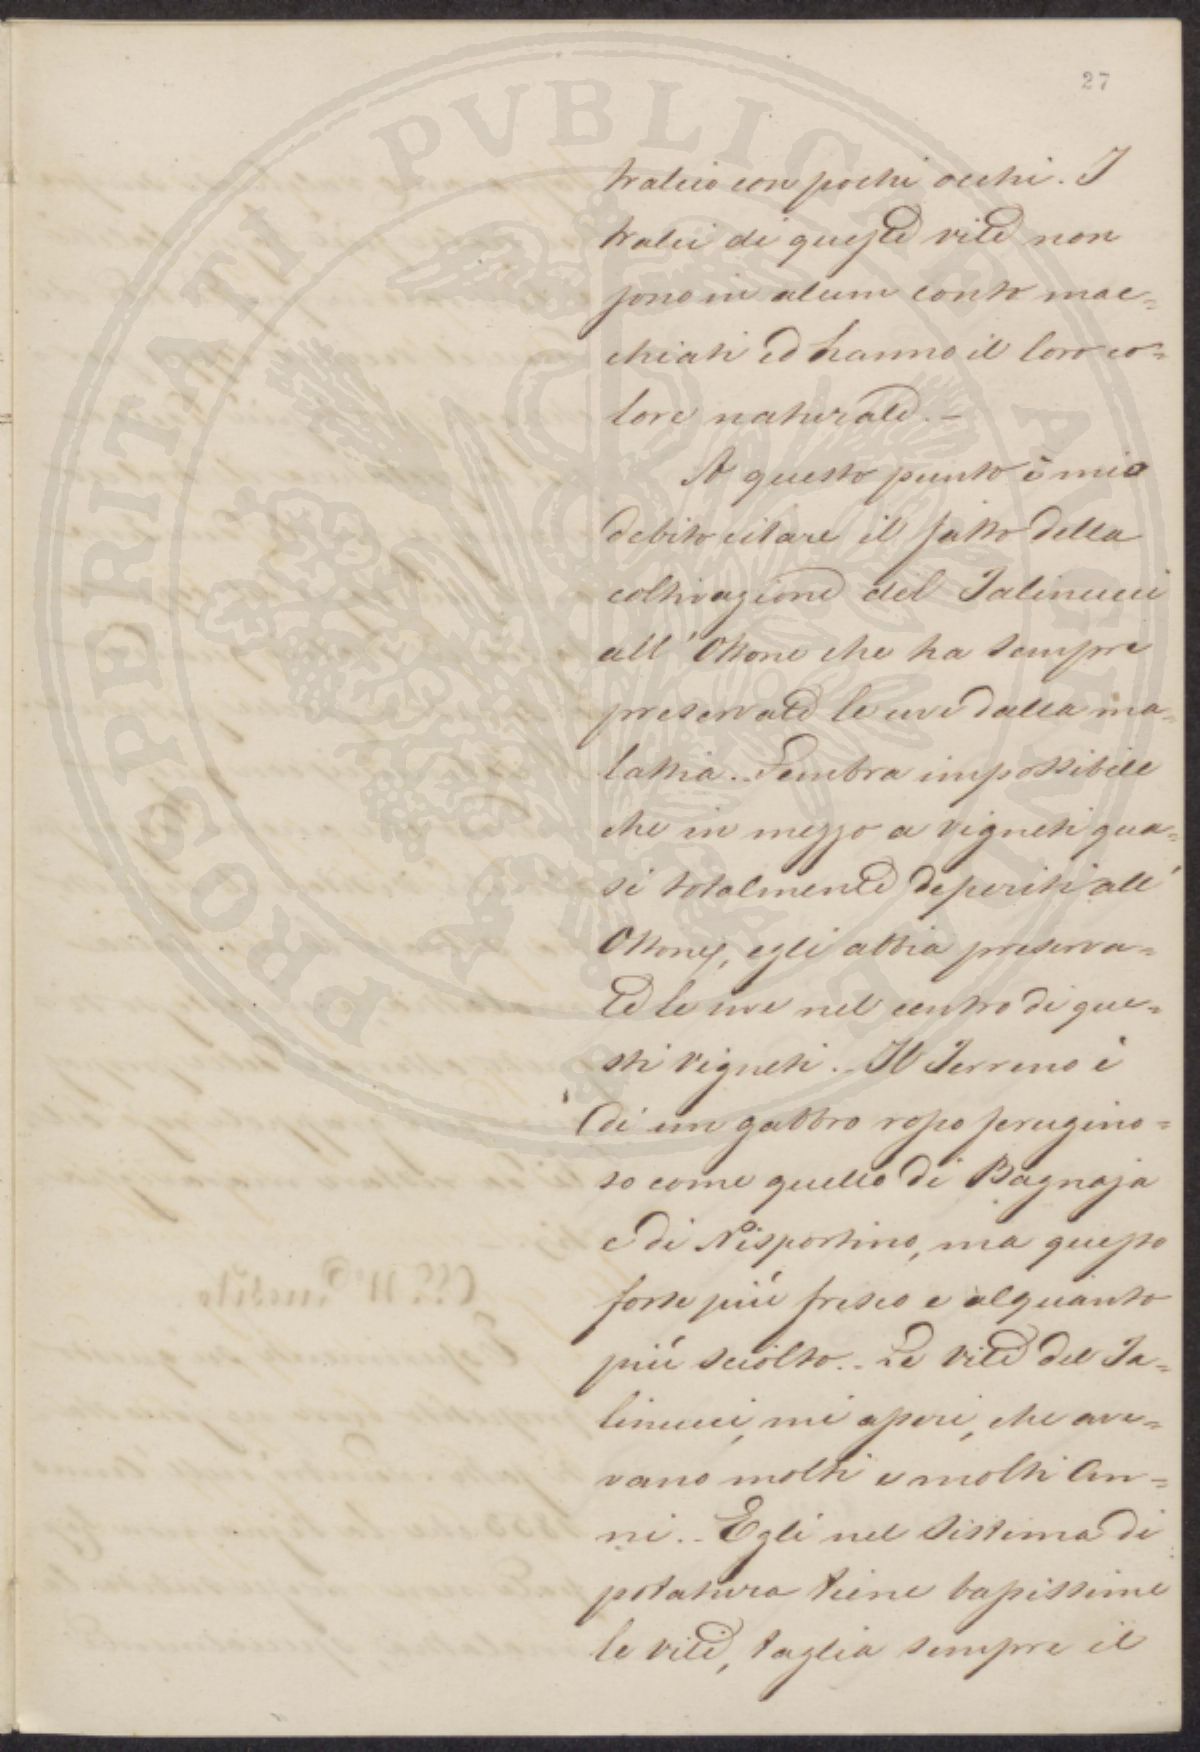 27
tralcio con pochi occhi. I
tralci di queste vite non
sono in alcun conto mac=
chiati ed hanno il loro co=
lore naturale.—
A questo punto è mio
debito citare il fatto della
coltivazione del Talinucci
all'Ottone che ha sempre
preservate le uve dalla ma=
lattia.. Sembra impossibile
che in mezzo a vigneti qua=
si totalmente deperiti all'
Ottone, egli abbia preserva=
te le uve nel centro di que=
sti vigneti.. Il Terreno è
di un gabbro rosso ferugino=
so come quello di Bagnaja
e di Nisportino, ma questo
forse più fresco e alquanto
più sciolto.. Le vite del Ta=
linucci, mi asserì, che ave=
vano molti e molti An=
ni.. Egli nel sistema di
potatura tiene bassissime
le vite, taglia sempre il
PROSPERITATI PVBLICAE AVGENDAE